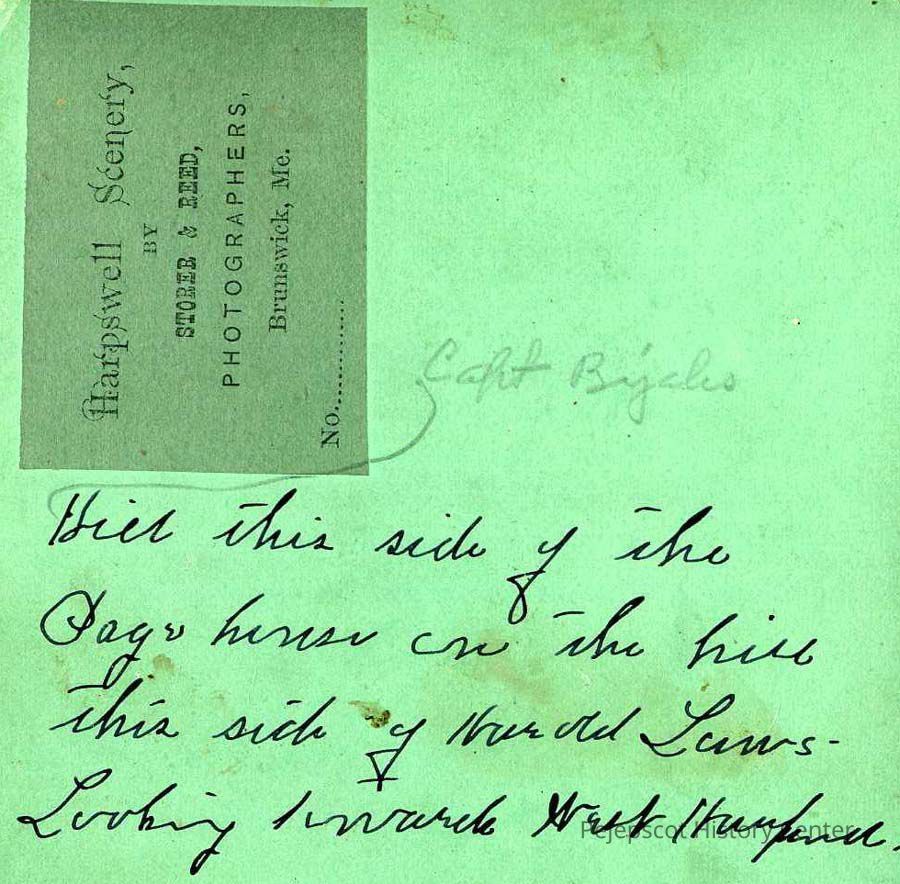 Harpswell Scenery,
BY
STORER & REED,
PHOTOGRAPHERS,
Brunswick, Me.
No..............
Capt
Hill this side of the
Page house on the hill
this side of Harold Laws-
Looking towards West Harpswell.
Pejepscot History Center